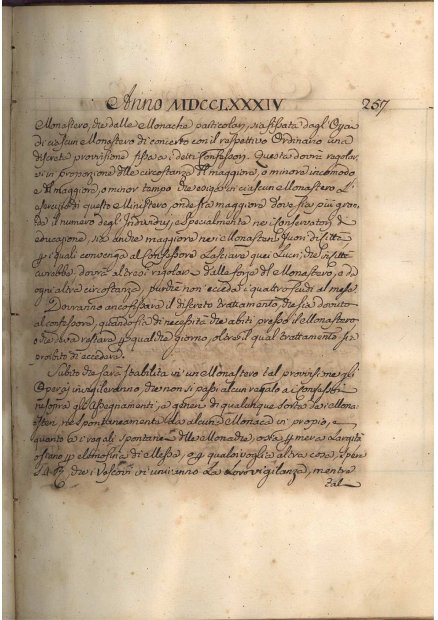 Anno MDCCLXXXIV 267
Monastero, che dalle Monache particolari, sia fissata dagl'Operai
di ciascun Monastero di concerto con il respettivo Ordinario una
discreta provvisione fissa a' detti Confessori. Questa dovrà regolar
si in proporzione delle circostanze del maggiore, o minore incomodo
e del maggiore, o minor tempo che esige in ciascun Monastero l'
esercizio di questo Ministero, onde sia maggiore dove sia più gran
de il numero degl'Individui, e specialmente nei Conservatori di
educazione, sia anche maggiore nei Monasteri fuori di Città
i quali convenga al Confessore lasciare quei lucri, che in Città
avrebbe, dovrà altresì regolarsi dalle forze del Monastero, e da
ogni altra circostanza, purchè non ecceda i quattro scudi al mese.
Dovranno anco fissare il discreto trattamento, che sia dovuto
al Confessore, quando sia di necessità che abiti presso il Monastero
o che deva restare qualche giorno, oltre il qual trattamento sia
proibito di accedere.
Subito che sarà stabilita in un Monastero tal provvisione gli
Operai invigileranno, che non si passi alcun regalo ai Confessori
sopra gli Assegnamenti, o generi di qualunque sorta dai Mona
steri, nè spontaneamente da alcuna Monaca in proprio, e
quanto ai regali spontanei delle Monache, o sia per mera carità
o siano per elemosina di Messa, o per qualsivoglia altra cosa
che i Vescovi vi uniranno la loro vigilanza, mentre
tal